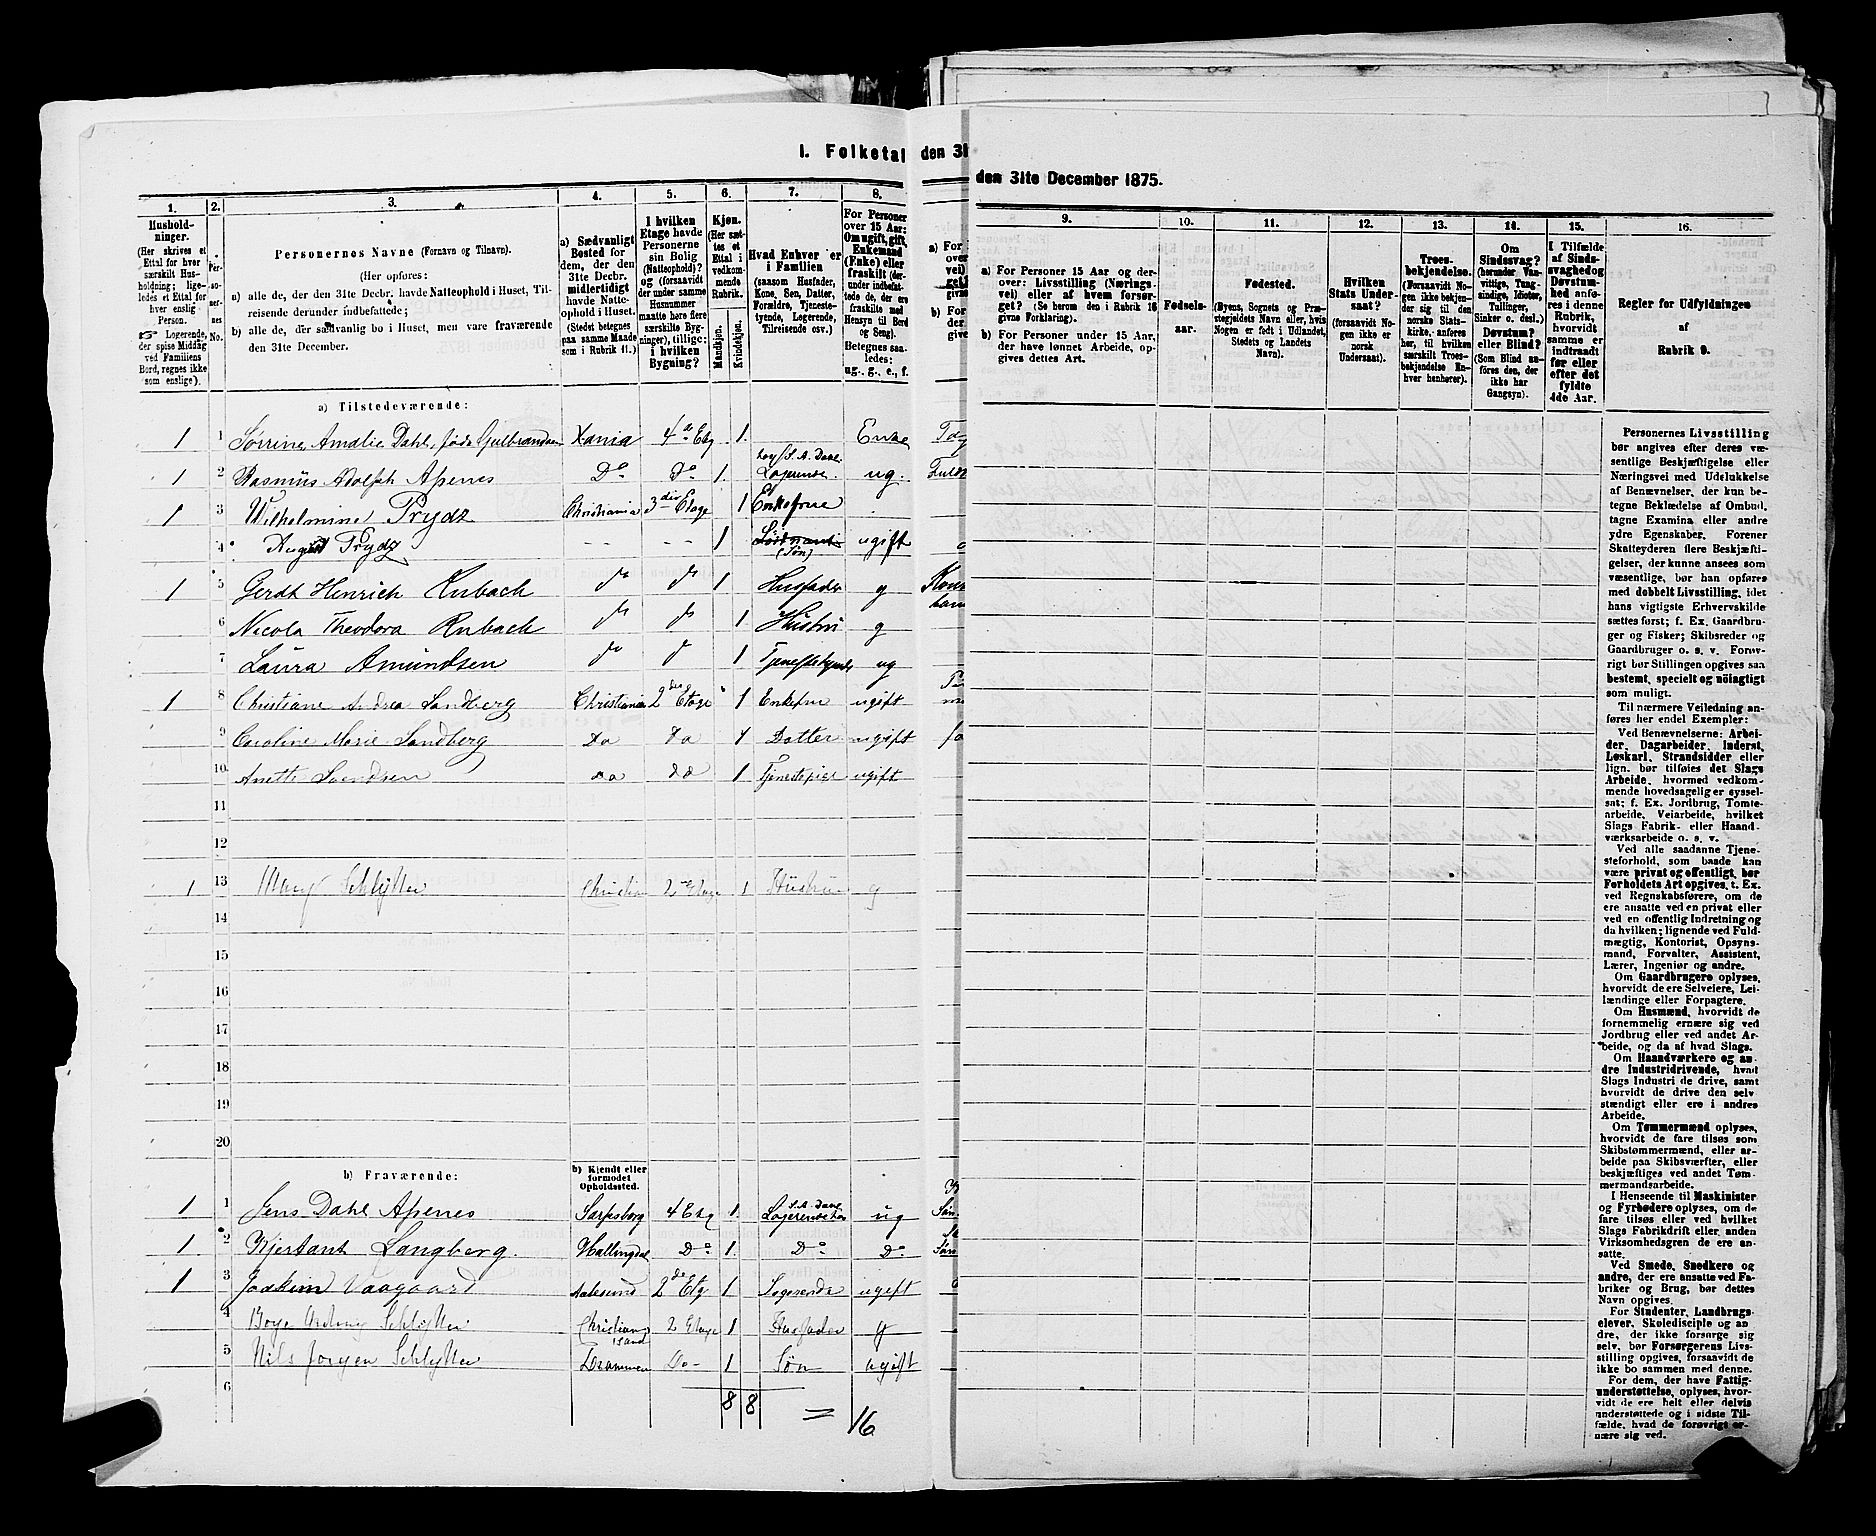 I. Folketal den 31
den 31te December 1875.
1.
2.
3.
4.
5.
6.
7.
8.
Husholdninger.
(Her skrives et
Ettal for hver
særskilt Husholdning;
ligeledes et Ettal for
hver enslig
Person.
Logerende,
der spise Middag
ved Familiens
Bord, regnes ikke
som enslige).
Personernes No.
Personernes Navne (Fornavn og Tilnavn).
(Her opføres:
a) alle de, der den 31te Decbr. havde Natteophold i Huset, Tilreisende derunder indbefattede;
b) alle de, der sædvanlig bo i Huset, men vare fraværende
den 31te December.
a) Sædvanligt
Bosted for
dem, der den
31te Decbr.
midlertidigt
havde Natteophold i Huset.
(Stedet betegnes
paa samme Maade
som i Rubrik 11.)
I hvilken
Etage havde
Personerne
sin Bolig
(Natteophold)?
og (forsaavidt
der under samme
Husnummer
maatte høre flere
særskilte Bygninger), tillige:
i hvilken
Bygning?
Kjøn.
(Her sættes et
Ettal i
vedkommende
Rubrik.
Mandkjøn.
Kvindekjøn.
Hvad Enhver er
i Familien
(saasom Husfader,
Kone, Søn, Datter,
Forældre, Tjenestetyende, Logerende,
Tilreisende osv.)
For Personer
over 15 Aar:
Om ugift, gift,
Enkemand
(Enke) eller
fraskilt (derunder indbefattede de, der ere
fraskilte med
Hensyn til Bord
og Seng).
Betegnes saaledes:
ug., g., e., f.
a) Tilstedeværende:
1 1 Sørrine Amalie Dahl, føds Gulbrandsen Xania 4a Etg 1. Enke
1 2 Rasmus Adolph Apenes Do Do 1. Logerende ug.
1 3 Wilhelmine Prydz Christiania 3die Etage 1 Enkefrue
4 August Prydz - - - - 1 (Søn) ugift
1 5 Gerdt Henrich Rubach do do 1 Husfader g
6 Nicola Theodora Rubach do do 1 Hustru g
7 Laura Amundsen do do 1 ug
1 8 Christiane Andrea Sandberg Christiania 2den Etage 1 Enkefrue ugift
9 Caroline Marie Sandberg Do Do 1 Datter ugift
10 Anette Svendsen Do Do 1 Tjenestepige ugift
11
12
1 13 Mary Schlytter 2 Etage 1 Hustru g
14
15
16
17
18
19
20
b) Fraværende:
b) Kjendt eller
formodet
Opholdssted.
1 1 Jens Dahl Apenes Sarpsborg 4 Etg 1. S. A. Dahl Logerende hos ug
1 2 Kjerstant Langberg. Hallingdal Do 1. Do Do
1 3 Joakim Vaagaard Aalesund 2de Etg 1 Logerende ugift
4 Schlytter Christiansand 2 Etage 1 Husfader g
5 Nils Jørgen Schlytter Drammen Do - 1 Søn ugift
6
8 8 = 16
9.
10.
11.
12.
13.
14.
15.
16.
a) For Personer 15 Aar og derover: Livsstilling (Næringsvei) eller af hvem forsørget? (Se herom den i Rubrik 16
givne Forklaring).
b) For Personer under 15 Aar,
der have lønnet Arbeide, opgives dettes Art.
Fødselsaar.
Fødested.
(Byens, Sognets og Præstegjeldets Navn eller, hvis
Nogen er født i Udlandet,
Stedets og Landets
Navn).
Hvilken
Stats Undersaat?
(forsaavidt Nogen ikke er
norsk
Undersaat).
Troesbekjendelse.
(Forsaavidt Nogen ikke bekjender sig til den
norske Statskirke, anføres
her, til hvilken
særskilt Troesbekjendelse Enhver henhører).
Om
Sindssvag?
(herunder Vanvittige, Tungsindige, Idioter,
Tullinger,
Sinker o. desl.)
Døvstum?
eller Blind?
(Som Blind anføres den, der
ikke har
Gangsyn).
I Tilfælde
af Sindssvaghed og
Døvstumhed anføres i denne
Rubrik,
hvorvidt
samme er
indtraadt
før eller
efter det
fyldte
4de Aar.
Regler for Udfyldningen
af
Rubrik 9.
Personernes Livsstilling
bør angives efter deres væsentlige Beskjæftigelse eller
Næringsvei med Udelukkelse
af Benævnelser, der kun betegne Beklædelse af Ombud,
tagne Examina eller andre
ydre Egenskaber. Forener
Skatteyderen flere Beskjæftigelser, der kunne ansees som
væsentlige, bør han opføres
med dobbelt Livsstilling, idet
hans vigtigste Erhvervskilde
sættes først; f. Ex. Gaardbruger og Fisker; Skibsreder og
Gaardbruger o. s. v. Forøvrigt bør Stillingen opgives saa
bestemt, specielt og nøiagtigt
som muligt.
Til nærmere Veiledning anføres her endel Exempler:
Ved Benævnelserne: Arbeider, Dagarbeider, Inderst,
Løskarl, Strandsidder eller
lign. bør tilføies det Slags
Arbeide, hvormed vedkommende hovedsagelig er sysselsat; f. Ex. Jordbrug, Tomtearbeide, Veiarbeide, hvilket
Slags Fabrik- eller Haandværksarbeide o. s. v.
Ved alle saadanne Tjenesteforhold, som baade kan
være privat og offentligt, bør
Forholdets Art opgives, t. Ex.
ved Regnskabsførere, om de
ere ansatte ved en privat eller
ved en offentlig Indretning og
da hvilken; lignende ved Fuldmægtig, Kontorist, Opsynsmand, Forvalter, Assistent,
Lærer, Ingeniør og andre.
Om Gaardbrugere oplyses,
hvorvidt de ere Selveiere, Leilændinge eller Forpagtere.
Om Husmænd, hvorvidt de
fornemmelig ernære sig ved
Jordbrug eller ved andet Arbeide, og da af hvad Slags.
Om Haandværkere og andre Industridrivende, hvad
Slags Industri de drive, samt
hvorvidt de drive den selvstændigt eller ere i andres
Arbeide.
Om Tømmermænd oplyses,
hvorvidt de fare tilsøs som
Skibstømmermænd, eller arbeide paa Skibsværfter, eller
beskjæftiges ved andet Tømmermandsarbeide.
I Henseende til Maskinister
og Fyrbødere oplyses, om de
fare tilsøs eller ved hvilket
Slags Fabrikdrift eller anden
Virksomhedsgren de ere ansatte.
Ved Smede, Snedkere og
andre, der ere ansatte ved Fabriker og Brug, bør dettes
Navn opgives.
For Studenter, Landbrugselever, Skoledisciple og andre, der ikke forsørge sig
selv, bør Forsørgerens Livsstilling opgives, forsaavidt de
ikke bo sammen med denne.
For dem, der have Fattigunderstøttelse, oplyses, hvorvidt de ere helt eller delvis
understøttede og i sidste Tilfælde, hvad de forøvrigt ernære sig ved.